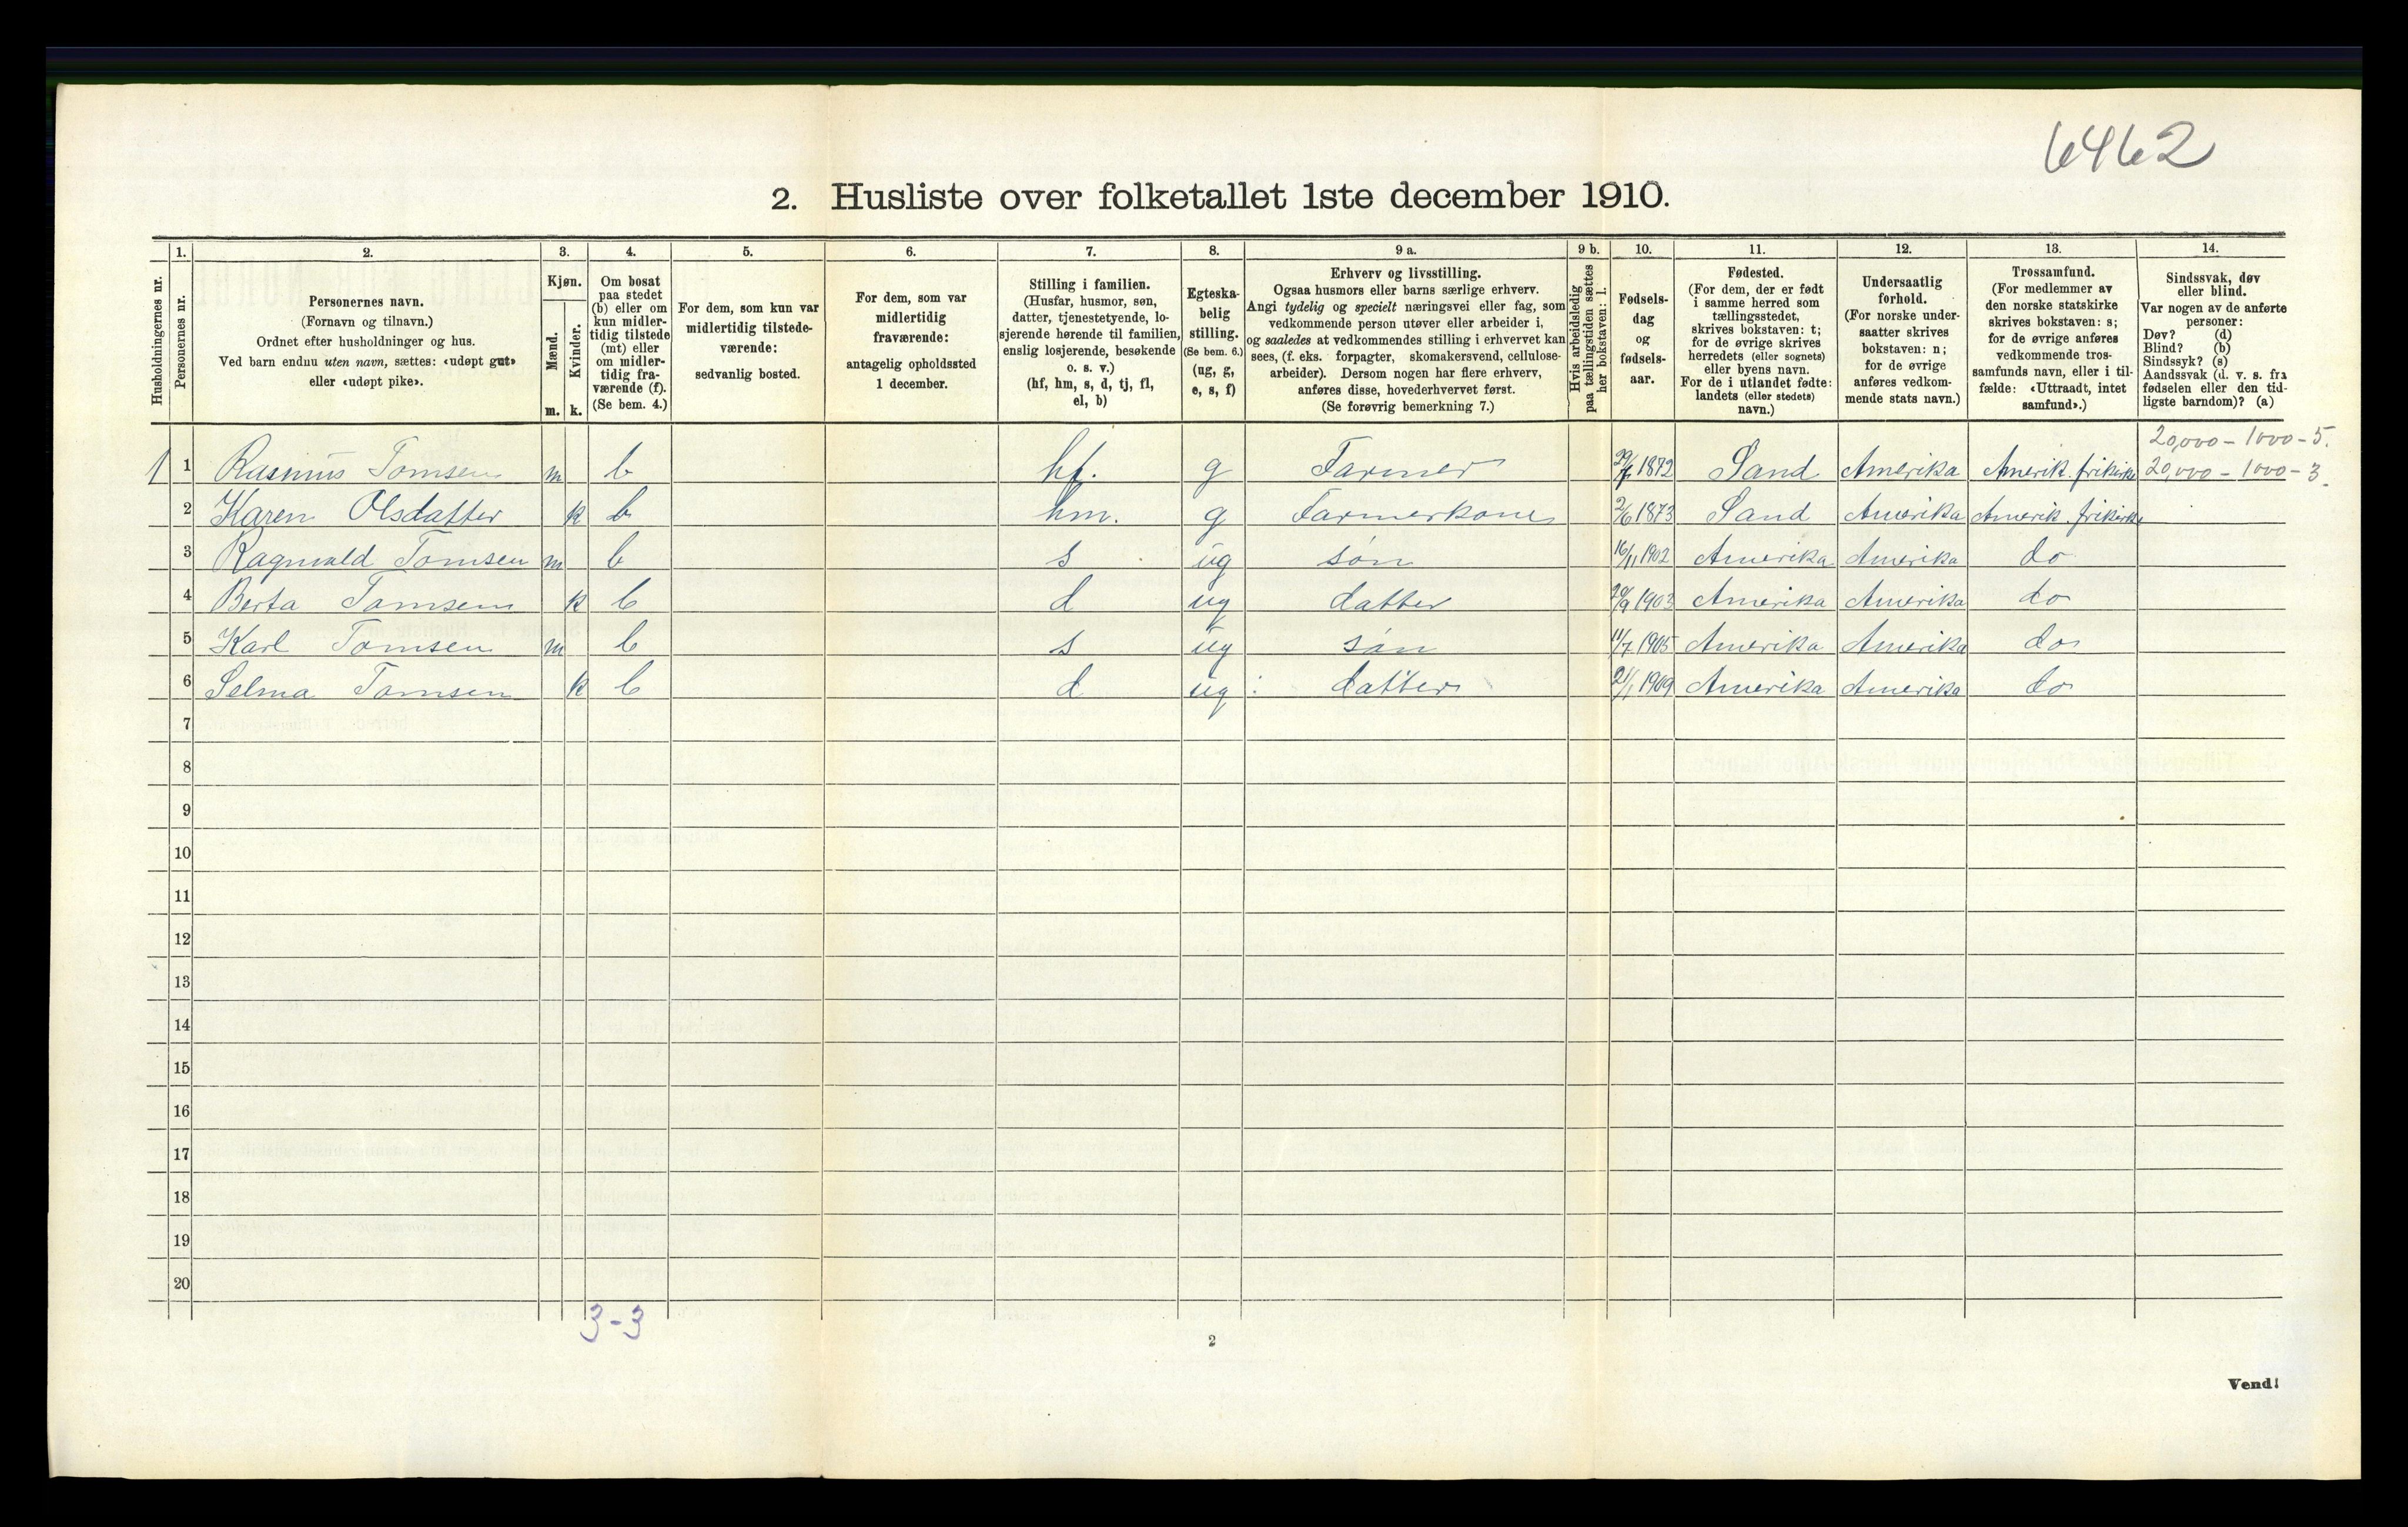 6462
2. Husliste over folketallet 1ste december 1910.
Husholdningernes nr.
1.
Personernes nr.
2.
Personernes navn.
(Fornavn og tilnavn.)
Ordnet efter husholdninger og hus.
Ved barn endnu uten navn, sættes: «udøpt gut»
eller «udøpt pike».
3.
Kjøn.
Mænd.
Kvinder.
m. k.
4.
Om bosat
paa stedet
(b) eller om
kun midler-
tidig tilstede
(mt) eller
om midler-
tidig fra-
værende (f).
(Se bem. 4.)
5.
For dem, som kun var
midlertidig tilstede-
værende:
sedvanlig bosted.
6.
For dem, som var
midlertidig
fraværende:
antagelig opholdssted
1 december.
7.
Stilling i familien.
(Husfar, husmor, søn,
datter, tjenestetyende, lo-
sjerende hørende til familien,
enslig losjerende, besøkende
o. s. v.)
(hf, hm, s, d, tj, fl,
el, b)
8.
Egteska-
belig
stilling.
(Se bem. 6.)
(ug, g,
e, s, f)
9 a.
Erhverv og livsstilling.
Ogsaa husmors eller barns særlige erhverv.
Angi tydelig og specielt næringsvei eller fag, som
vedkommende person utøver eller arbeider i,
og saaledes at vedkommendes stilling i erhvervet kan
sees, (f. eks. forpagter, skomakersvend, cellulose-
arbeider). Dersom nogen har flere erhverv,
anføres disse, hovederhvervet først.
(Se forøvrig bemerkning 7.)
9 b.
Hvis arbeidsledig
paa tællingstiden sættes
her bokstaven: l.
10.
Fødsels-
dag
og
fødsels-
aar.
11.
Fødested.
(For dem, der er født
i samme herred som
tællingsstedet,
skrives bokstaven: t;
for de øvrige skrives
herredets (eller sognets)
eller byens navn.
For de i utlandet fødte:
landets (eller stedets)
navn.)
12.
Undersaatlig
forhold.
(For norske under-
saatter skrives
bokstaven: n;
for de øvrige
anføres vedkom-
mende stats navn.)
13.
Trossamfund.
(For medlemmer av
den norske statskirke
skrives bokstaven: s;
for de øvrige anføres
vedkommende tros-
samfunds navn, eller i til-
fælde: «Uttraadt, intet
samfund».)
14.
Sindssvak, døv
eller blind.
Var nogen av de anførte
personer:
Døv? (d)
Blind? (b)
Sindssyk? (s)
Aandssvak (d. v. s. fra
fødselen eller den tid-
ligste barndom)? (a)
20,000 - 1000 - 5.
1 1 Rasmus Tomsen m b hf. g Farmer 1872 Sand Amerika Amerik. frikirke 20,000 - 1000 - 3.
2 Karen Olsdatter k b hm. g Farmerkone 2/6 1873 Sand Amerika Amerik. frikirke
3 Ragnvald Tomsen m b s ug søn 16/11 1902 Amerika Amerika do
4 Berta Tomsen k b d ug datter 20/9 1903 Amerika Amerika do
5 Karl Tomsen m b s ug søn 11/7 1905 Amerika Amerika do
6 Selma Tomsen k b d ug datter 21/1 1909 Amerika Amerika do
7
8
9
10
11
12
13
14
15
16
17
18
19
20
3-3
2
Vend!